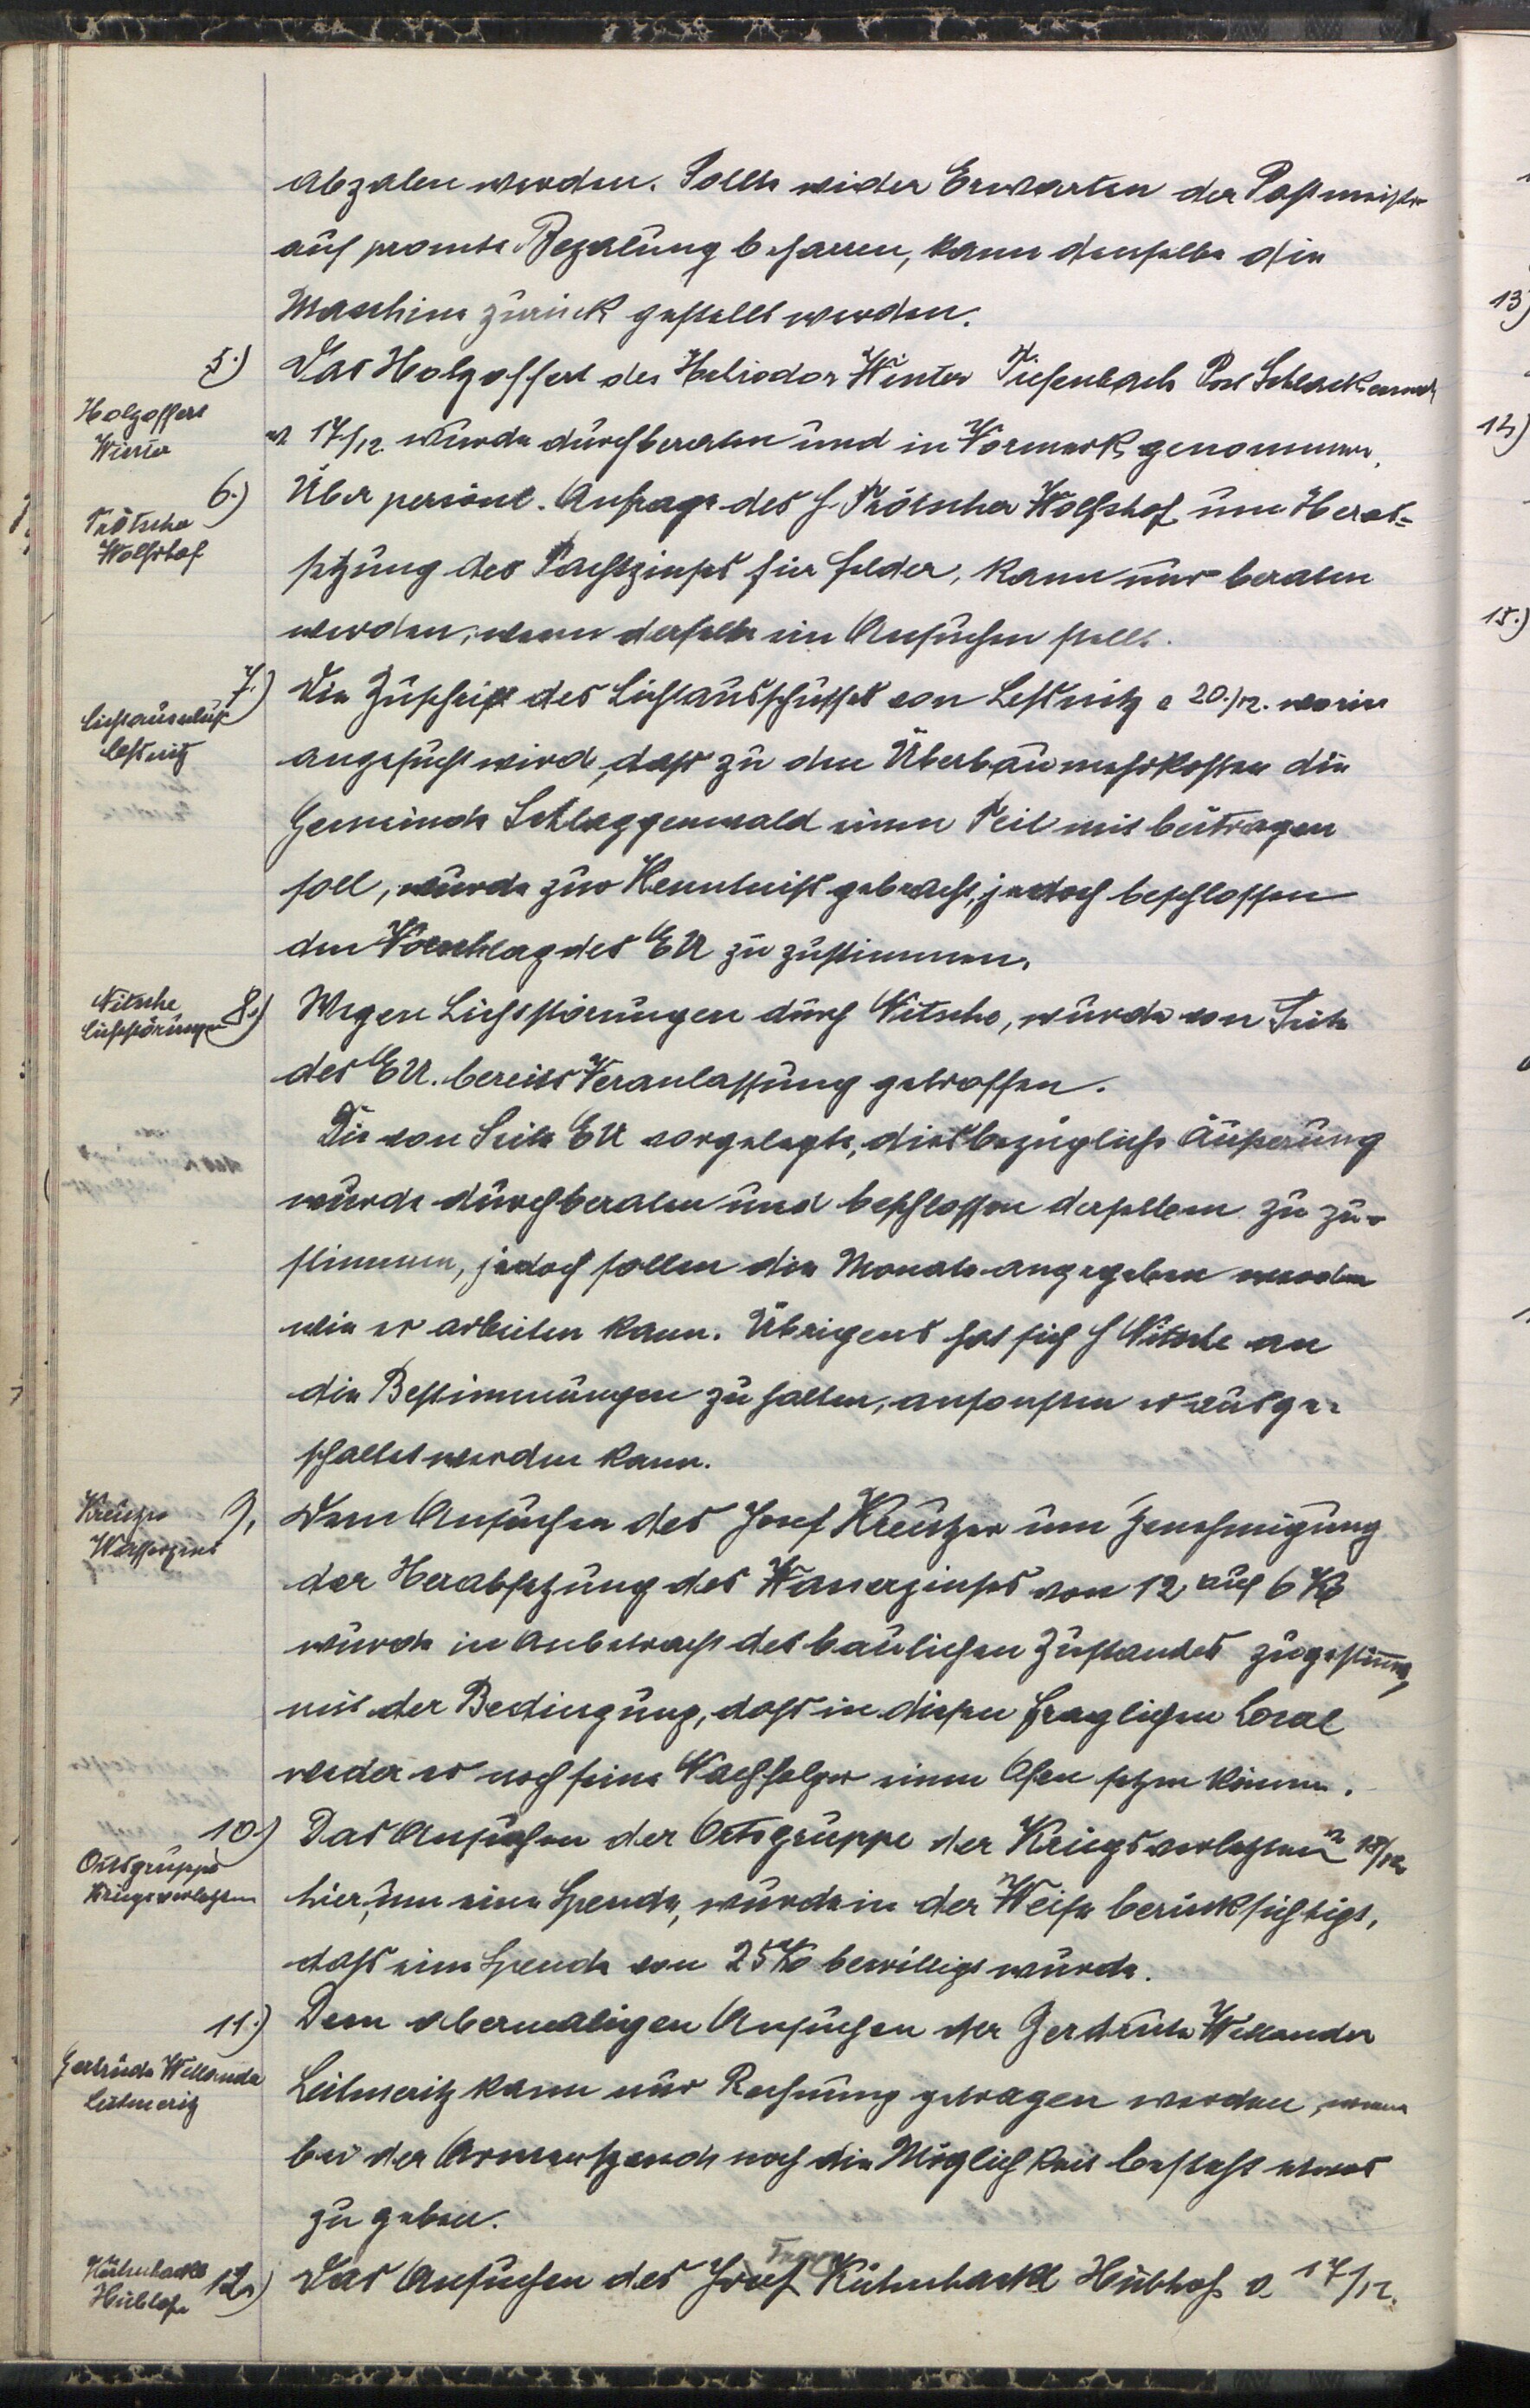 abzalen werden. Sollte wider Erwarten der Postmeister
auf promte Bezalung beharren, kann denselben die
Maschine zurück gestellt werden.
5.) Das Holzoffert des Heliodor Winter Tiefenbach Post Schlackenwerth
Holzoffert
Winter
v. 17/12. wurde durchberaten und in Vormerk genommen.
6.) Über persönl. Anfrage des H. Trötscher Wolfshof um Herab=
Trötscher
Wolfshof
setzung des Pachtzinses für Felder, kann nur beraten
werden, wenn derselbe ein Ansuchen stellt.
7.) Die Zuschrift des Lichtausschusses von Lessnitz v 20./12. worin
Lichtausschuß
Lessnitz
angesucht wird, dass zu den Überbaumehrkosten die
Gemeinde Schlaggenwald einen Teil mit beitragen
soll, wurde zur Kenntniss gebracht, jedoch beschlossen
den Vorschlag des EU zu zustimmen.
Nitsche 8.) Wegen Lichtstörungen durch Nitsche, wurde von Seite
Lichtstörungen
des EU. bereits Veranlassung getroffen.
Die von Seite EU vorgelegte, diesbezügliche Äußerung
wurde durchberaten und beschlossen derselben zu zu=
stimmen, jedoch sollen die Monate angegeben werden
wie er arbeiten kann. Übrigens hat sich H Nitsche an
die Bestimmungen zu halten, ansonsten er ausge=
schaltet werden kann.
Kreuzer 9, Dem Ansuchen des Josef Kreutzer um Genehmigung
Wasserzins
der Herabsetzung des Wasserzinses von 12 auf 6 Kč
wurde in Anbetracht des baulichen Zustandes zugestimmt,
mit der Bedingung, dass in diesen fraglichen Local
weder er noch seine Nachfolger einen Ofen setzen können.
10.) Das Ansuchen der Ortsgruppe der Kriegsverletzten v 18/12
Ortsgruppe
Kriegsverletzten
hier, um eine Spende, wurde in der Weise berücksichtigt,
dass eine Spende von 25 Kč bewilligt wurde.
11.) Dem abermaligen Ansuchen der Gertrude Willander
Gertrude Willander
Leitmeritz
Leitmeritz kann nur Rechnung getragen werden, wenn
bei der Armenspende noch die Möglichkeit besteht etwas
zu geben.
Kühnhackl 12.) Das Ansuchen des Josef Franz Kühnhackl Hubhof v. 17/12.
Hubhof